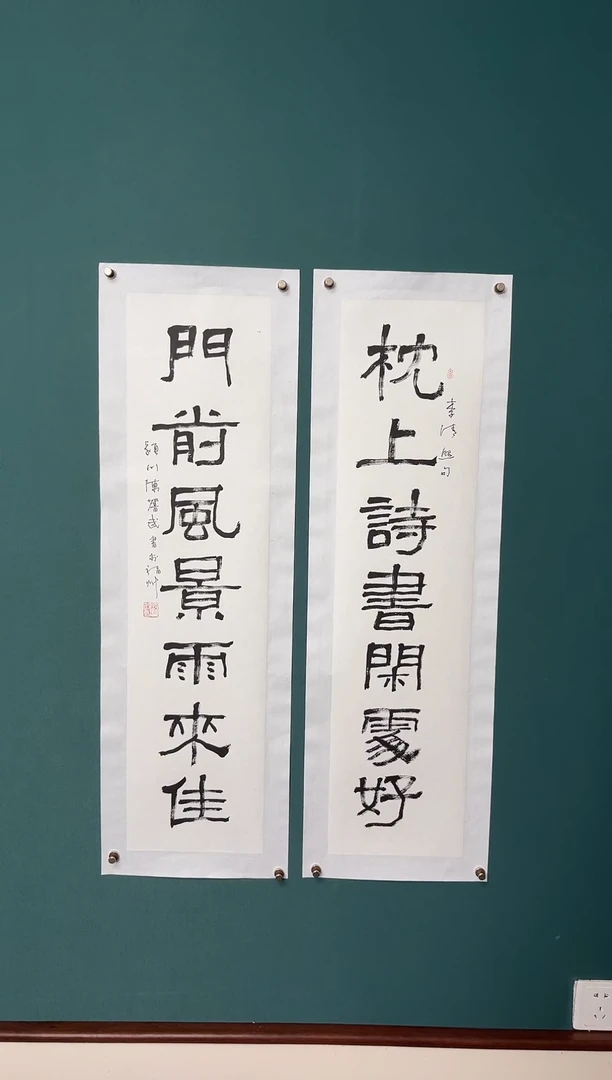 枕上詩書閑處好
李清照句
門前風景雨來佳
潁川陳
書於福州